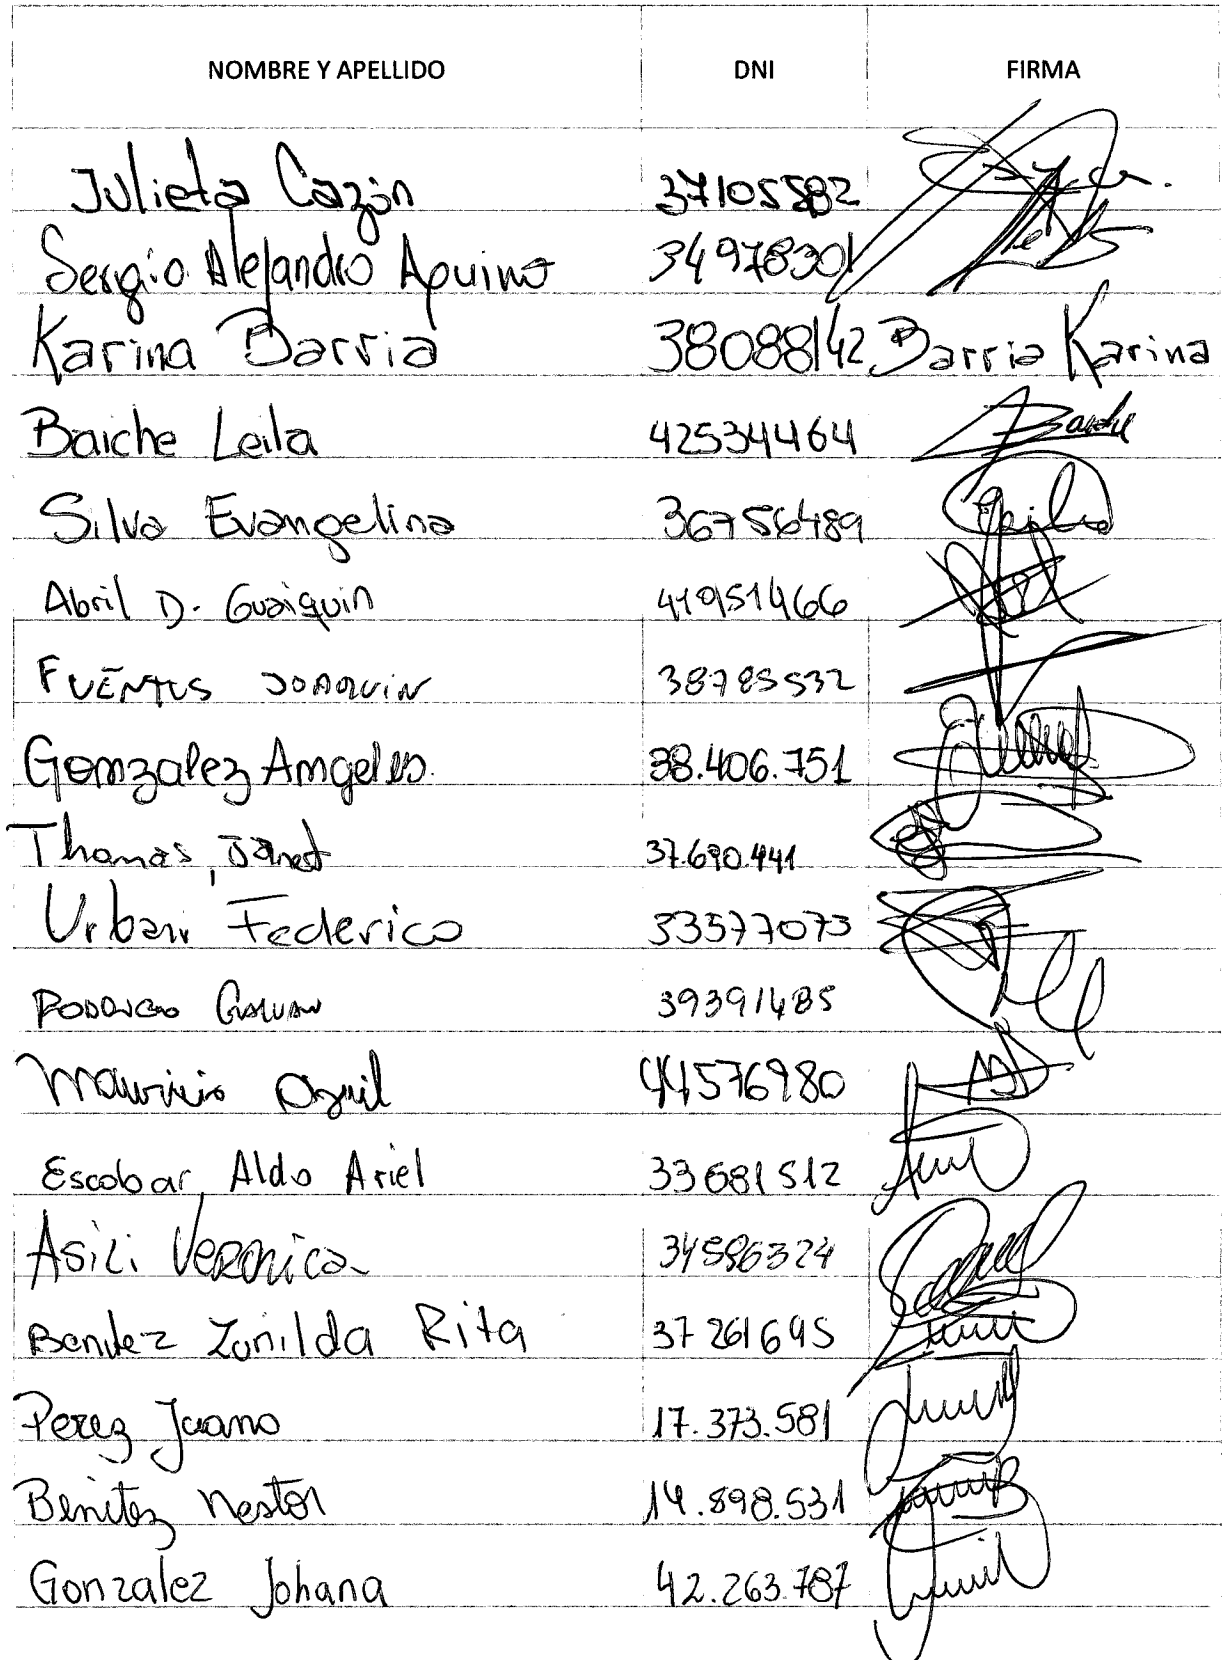 NOMBRE Y APELLIDO DNI FIRMA
Julieta Cazón 37105582
Sergio Alejandro Aquino 34978301
Karina Barria 38088142 Barria Karina
Baiche Leila 42534464 Baiche
Silva Evangelina 36756489
Abril D. Guaiquin 41951466
FUENTES JOAQUIN 38785532
Gomzalez Amgeles 38.406.751
Thomas, Janet 37.690.441
Urbani Federico 33577073
RODRIGO GALVAN 39391485
Mauricio 44576980
Escobar, Aldo Ariel 33681512
Asili Veronica 34586324
Benitez Zunilda Rita 37261695
Perez Juana 17.373.581
Benitez Nestor 14.898.531
Gonzalez Johana 42.263.787